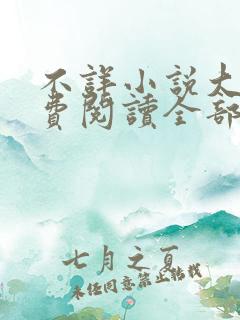 不詳小說太
費閱讀全部
七月之夏
未經同意禁止轉載